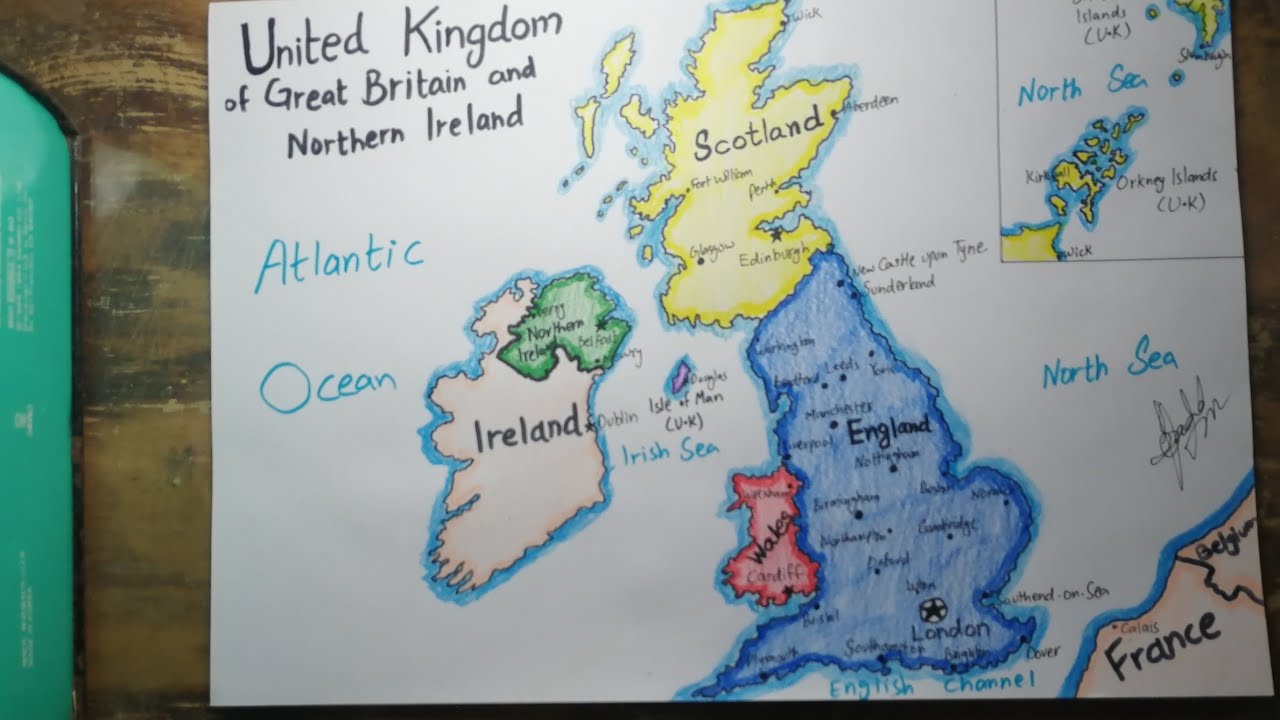 United Kingdom
of Great Britain and
Northern Ireland
Wick
Islands
(U.K)
North Sea
Aberdeen
Scotland
Kirkwall
Orkney Islands
(U.K)
Wick
Fort William
Perth
Glasgow
Edinburgh
Atlantic
Ocean
New Castle upon Tyne
Sunderland
Northern
Ireland
Belfast
Workington
Leeds
York
Bradford
Douglas
Isle of Man
(U.K)
Ireland
Dublin
Irish Sea
North Sea
Manchester
England
Liverpool
Nottingham
Boston
Wrexham
Wales
Birmingham
Cambridge
Northampton
Oxford
Cardiff
Southend-on-Sea
Bristol
London
Southampton
Brighton
Dover
Plymouth
English Channel
Belgium
Calais
France